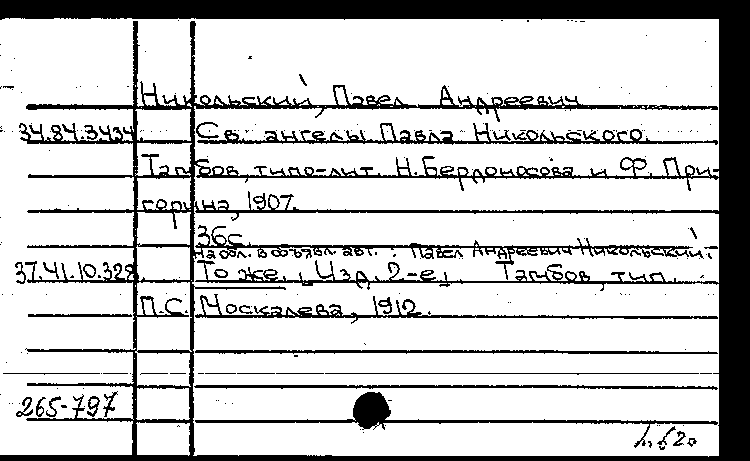 Никольский, Павел Андреевич
34.84.3434. Св. ангелы Павла Никольского.
Тамбов, типо-лит. Н. Бердоносова и Ф. При-
горина, 1907.
36с.
На обл. в объявл. авт.: Павел Андреевич Никольский.
37.41.10.328. То же. [Изд. 2-е]. Тамбов, тип.
П.С. Москалева, 1912.
265-797